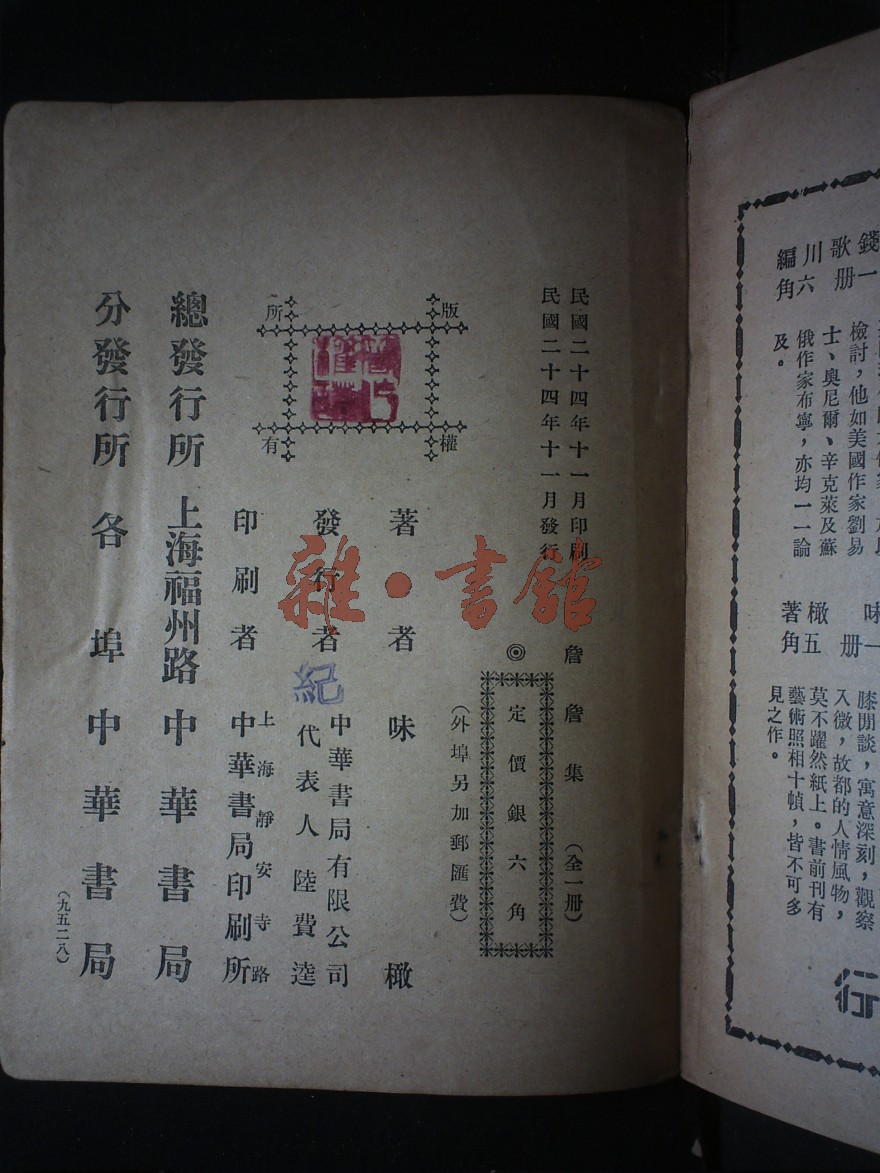 民國二十四年十一月印刷
民國二十四年十一月發行
詹詹集（全一册）
◎定價銀六角
（外埠另加郵匯費）
版權所有
著者 味橄
發行者 中華書局有限公司
代表人陸費逵
紀
印刷者 上海靜安寺路
中華書局印刷所
總發行所 上海福州路 中華書局
分發行所 各埠中華書局
（九五二八）
雜·書館
錢一
歌册
川六
編角
檢討，他如美國作家劉易
士、奧尼爾、辛克萊及蘇
俄作家布寧，亦均一一論
及。
味一
橄五
著角
册
膝閒談，寓意深刻，觀察
入微，故都的人情風物，
莫不躍然紙上。書前刊有
藝術照相十幀，皆不可多
見之作。
行